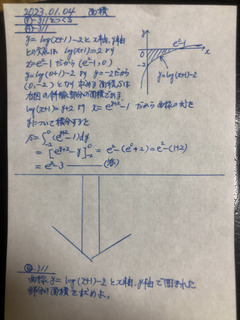 2023.01.04 面積
①-311をつくる
①-311
y=log(x+1)-2とx軸,y軸
との交点は log(x+1)=2より
x=e²-1だから(e²-1,0)
y=log(0+1)-2より y=-2だから
(0,-2)となり求める面積Sは
右図の斜線部分の面積である
log(x+1)=y+2より x=e^{y+2}-1だから面積の式を
yについて積分すると
S=∫_{-2}^{0}(e^{y+2}-1)dy
=[e^{y+2}-y]_{-2}^{0}=e²-(e⁰+2)=e²-(1+2)
=e²-3 (答)
y
e²-1
x
0
-2
y=log(x+1)-2
①-311
曲線y=log(x+1)-2とx軸,y軸で囲まれた
部分の面積を求めよ。